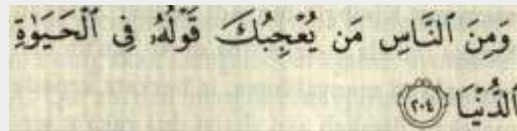 وَمِنَ ٱلنَّاسِ مَن يُعْجِبُكَ قَوْلُهُۥ فِى ٱلْحَيَوٰةِ
ٱلدُّنْيَا ٢٠٤